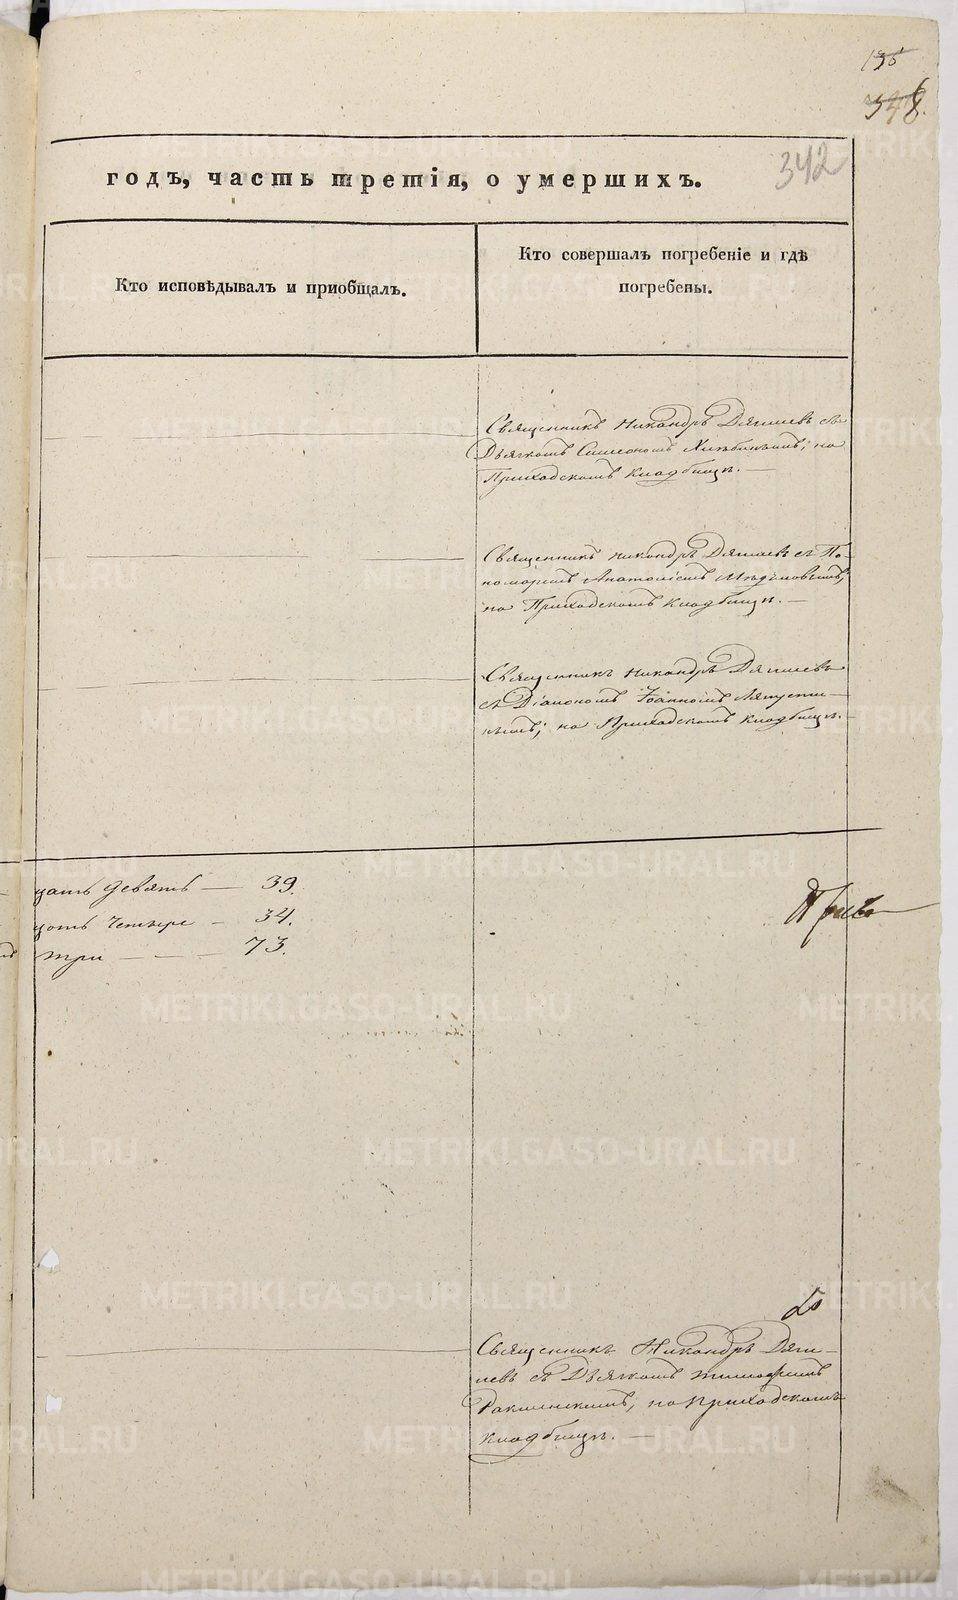 136
348.
342
годъ, часть третія, о умершихъ.
Кто исповѣдывалъ и пріобщалъ.
Кто совершалъ погребеніе и гдѣ
погребены.
Священникъ Никандръ Дягилевъ съ
Дьячкомъ Симеономъ Хлѣбинымъ; на
Приходскомъ кладбищѣ. —
Священникъ Никандръ Дягилевъ съ По-
номаремъ Анатоліемъ
на Приходскомъ кладбищѣ. —
Священникъ Никандръ Дягилевъ
съ Діакономъ Іоанномъ Ляпусти-
нымъ; на Приходскомъ кладбищѣ. —
цать девять — 39.
цать четыре — 34.
три — — — 73.
Священникъ Никандръ Дяги-
левъ съ Дьячкомъ Тимофеемъ
на Приходскомъ
кладбищѣ. —
METRIKI.GASO-URAL.RU